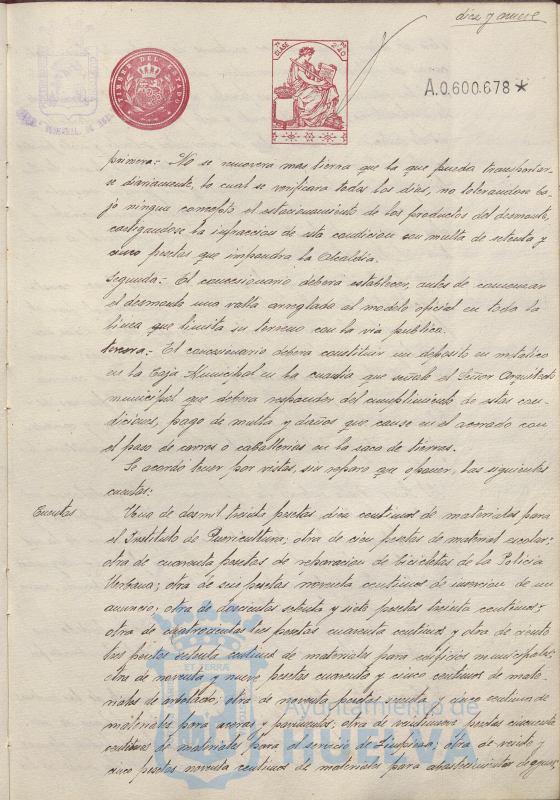 diez y nueve
TIMBRE DEL ESTADO
CLASE
A.0.600.678 *
primera:- No se removera mas tierra que la que pueda transportar-
se diariamente, lo cual se verificara todos los dias, no tolerandose ba-
jo ningun concepto el estacionamiento de los productos del desmonte,
castigandose la infraccion de esta condicion con multa de setenta y
cinco pesetas que impondra la Alcaldia.
Segunda:- El concesionario debera establecer, antes de comenzar
el desmonte una valla arreglada al modelo oficial en toda la
linea que limita su terreno con la via publica.
tercera:- El concesionario debera constituir un deposito en metalico
en la Caja Municipal en la cuantia que señale el Señor Arquitecto
municipal que debera responder del cumplimiento de estas con-
diciones, pago de multa y daños que cause en el acerado con
el paso de carros o caballerias en la saca de tierras.
Se acordó tener por vistas, sin reparo que oponer, las siguientes
cuentas:
Cuentas
Una de dos mil treinta pesetas diez centimos de materiales para
el Instituto de Puericultura; otra de cien pesetas de material escolar;
otra de cuarenta pesetas de reparacion de bicicletas de la Policia
Urbana; otra de seis pesetas noventa centimos de insercion de un
anuncio; otra de doscientas setenta y siete pesetas treinta centimos;
otra de cuatrocientas tres pesetas cuarenta centimos y otra de ciento
tres pesetas setenta centimos de materiales para edificios municipales;
otra de noventa y nueve pesetas cuarenta y cinco centimos de mate-
riales de arbolado; otra de noventa pesetas y cinco centimos de
materiales para aceras y pavimentos; otra de veintinueve pesetas cincuenta
centimos de materiales para el servicio de Limpieza; otra de veinte y
cinco pesetas noventa centimos de materiales para abastecimiento de aguas;
ET TERRÆ
Ayuntamiento de
HUELVA